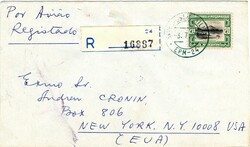 Por Avião
Registado
24
R 16887
EPM-24
Exmo Sr.
Andrew CRONIN
Box 806
NEW YORK. N.Y. 10008 USA
(EUA)